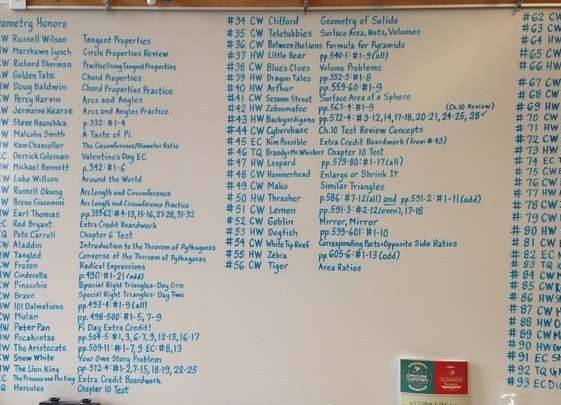 eometry Honors
W Russell Wilson Tangent Properties
W Marshawn Lynch Circle Properties Review
W Richard Sherman Practice Using Tangent Properties
W Golden Tate Chord Properties
W Doug Baldwin Chord Properties Practice
W Percy Harvin Arcs and Angles
W Jermaine Kearse Arcs and Angles Practice
W Steve Hauschka p.332: #1-4
W Malcolm Smith A Taste of Pi
W Kam Chancellor The Circumference/Diameter Ratio
C Derrick Coleman Valentine's Day EC
W Michael Bennett p.342: #1-6
W Luke Willson Around the World
W Russell Okung Arc Length and Circumference
W Breno Giacomini Arc Length and Circumference Practice
W Earl Thomas #4-13, 15-16, 27-28, 31-32
C Red Bryant Extra Credit Boardwork
Q Pete Carroll Chapter 6 Test
CW Aladdin Introduction to the Theorem of Pythagoras
HW Tangled Converse of the Theorem of Pythagoras
CW Frozen Radical Expressions
HW Cinderella p.490: #1-21 (odd)
CW Pinocchio Special Right Triangles-Day One
CW Brave Special Right Triangles-Day Two
HW 101 Dalmations pp.493-4: #1-9 (all)
CW Mulan pp.498-500: #1-5, 7-9
HW Peter Pan Pi Day Extra Credit!
HW Pocahontas pp.504-5: #1, 3, 6-7, 9, 12-13, 16-17
HW The Aristocats pp.509-11: #1-7, 9 EC: #8, 13
CW Snow White Your Own Story Problem
HW The Lion King pp.512-4: #1-2, 7-15, 18-19, 22-25
EC The Princess and the Frog Extra Credit Boardwork
Q Hercules Chapter 10 Test
#34 CW Clifford Geometry of Solids
#35 CW Teletubbies Surface Area, Nets, Volumes
#36 CW Between the Lions Formula for Pyramids
#37 HW Little Bear pp.540-1: #1-9 (all)
#38 CW Blue's Clues Volume Problems
#39 HW Dragon Tales pp.552-3: #1-8
#40 HW Arthur pp.559-60: #1-9
#41 CW Sesame Street Surface Area of a Sphere
#42 HW Zoboomafoo pp.563-4: #1-9 (Ch.10 Review)
#43 HW Backyardigans pp.572-4: #3-12, 14, 17-18, 20-21, 24-25, 28
#44 CW Cyberchase Ch.10 Test Review Concepts
#45 EC Kim Possible Extra Credit Boardwork (from #43)
#46 TQ Brandy & Mr. Whiskers Chapter 10 Test
#47 HW Leopard pp.579-80: #1-17 (all)
#48 CW Hammerhead Enlarge or Shrink It
#49 CW Mako Similar Triangles
#50 HW Thresher p.586: #7-12 (all) and pp.591-2: #1-11 (odd)
#51 CW Lemon pp.591-3: #2-12 (even), 17-18
#52 CW Goblin Mirror, Mirror
#53 HW Dogfish pp.599-601: #1-10
#54 CW White Tip Reef Corresponding Parts + Opposite Side Ratios
#55 HW Zebra pp.605-6: #1-13 (odd)
#56 CW Tiger Area Ratios
#62 CW
#63 CW
#64 HW
#65 CW
#66 HW
#67 CW
#68 CW
#69 HW
#70 CW
#71 HW
#72 CW
#73 HW
#74 EC
#75 CW
#76 CW
#77 HW
#78 CW
#79 CW
#80 HW
#81 CW
#82 EC
#83 TQ
#84 CW
#85 CW
#86 HW
#87 CW
#88 HW
#89 CW
#90 HW
#91 EC
#92 TQ
#93 EC